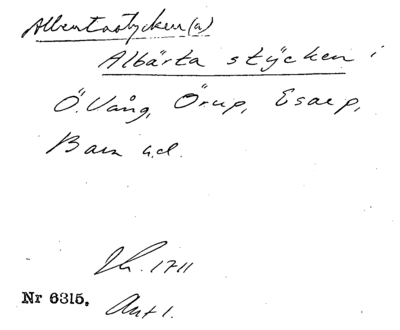 Albertastycken(a)
Albärta stÿcken i
Ö. Vång, Örup, Esarp,
Bara u.d.
Jb. 1711
Nr 6315. Ant 1.